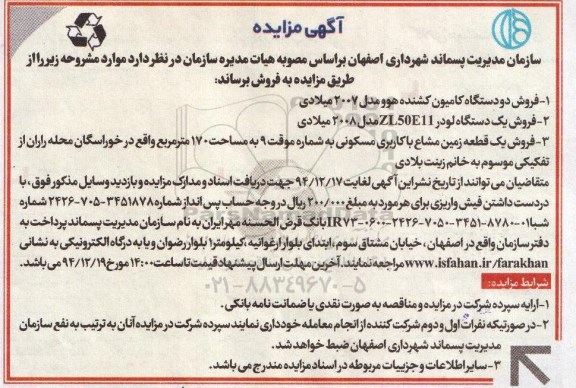 آگهی مزایده
سازمان مدیریت پسماند شهرداری اصفهان براساس مصوبه هیات مدیره سازمان در نظر دارد موارد مشروحه زیر را از
طریق مزایده به فروش برساند:
۱-فروش دو دستگاه کامیون کشنده هوو مدل ۲۰۰۷ میلادی
۲-فروش یک دستگاه لودر ZL50E11 مدل ۲۰۰۸ میلادی
۳-فروش یک قطعه زمین مشاع با کاربری مسکونی به شماره موقت ۹ به مساحت ۱۷۰ مترمربع واقع در خوراسگان محله راران از
تفکیکی موسوم به خانم زینت بلادی
متقاضیان می توانند از تاریخ نشر این آگهی لغایت ۹۴/۱۲/۱۷ جهت دریافت اسناد و مدارک مزایده و بازدید وسایل مذکور فوق، با
دردست داشتن فیش واریزی برای هر مورد به مبلغ ۲۰۰/۰۰۰ ریال در وجه حساب پس انداز شماره ۳۴۵۱۸۷۸-۷۰۵-۲۴۲۶ شماره
شبا IR۷۳-۰۶۰۰-۲۴۲۶-۷۰۵۰-۳۴۵۱-۸۷۸۰-۰۱ بانک قرض الحسنه مهر ایران به نام سازمان مدیریت پسماند پرداخت به
دفتر سازمان واقع در اصفهان ، خیابان مشتاق سوم ، ابتدای بلوار ارغوانیه ،کیلومتر۱ بلوار رضوان و یا به درگاه الکترونیکی به نشانی
www.isfahan.ir/farakhan مراجعه نمایند. آخرین مهلت ارسال پیشنهاد قیمت تا ساعت ۱۴:۰۰ مورخ ۹۴/۱۲/۱۹ می باشد.
شرایط مزایده:
۱-ارایه سپرده شرکت در مزایده و مناقصه به صورت نقدی یا ضمانت نامه بانکی.
۲-در صورتیکه نفرات اول و دوم شرکت کننده از انجام معامله خودداری نمایند سپرده شرکت در مزایده آنان به ترتیب به نفع سازمان
مدیریت پسماند شهرداری اصفهان ضبط خواهد شد.
۳-سایر اطلاعات و جزییات مربوطه در اسناد مزایده مندرج می باشد.
۰۲۱-۸۸۳۴۹۶۷۰-۵